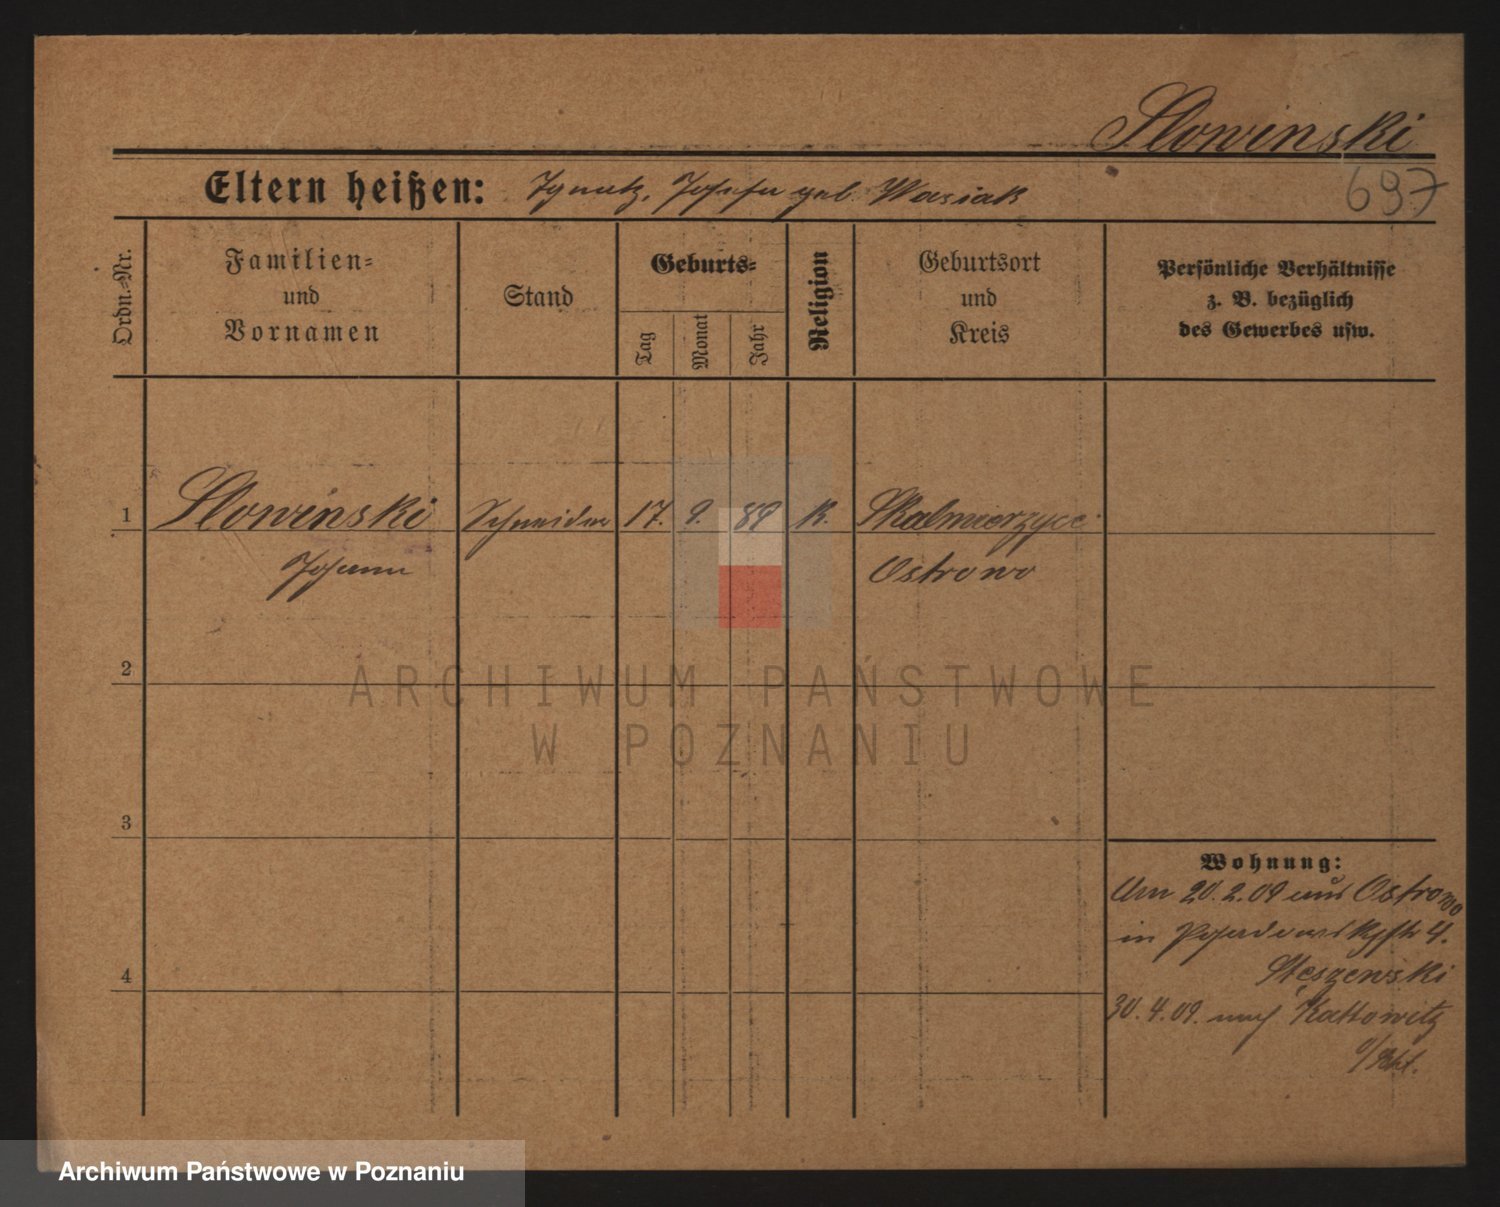 Slowinski
Eltern heißen: Ignatz, Josefa geb. Wasiak
697
Ordn.-Nr.
Familien-
und
Vornamen
Stand
Geburts-
Tag
Monat
Jahr
Religion
Geburtsort
und
Kreis
Persönliche Verhältnisse
z. B. bezüglich
des Gewerbes usw.
1 Slowinski Schneider 17. 9. 89 K. Skalmierzyce
Johann Ostrowo
2
ARCHIWUM PAŃSTWOWE
W POZNANIU
3
Wohnung:
Am 20.2.09 aus Ostrowo
in 4.
Steszewski
4
30.4.09. nach Kattowitz
Archiwum Państwowe w Poznaniu